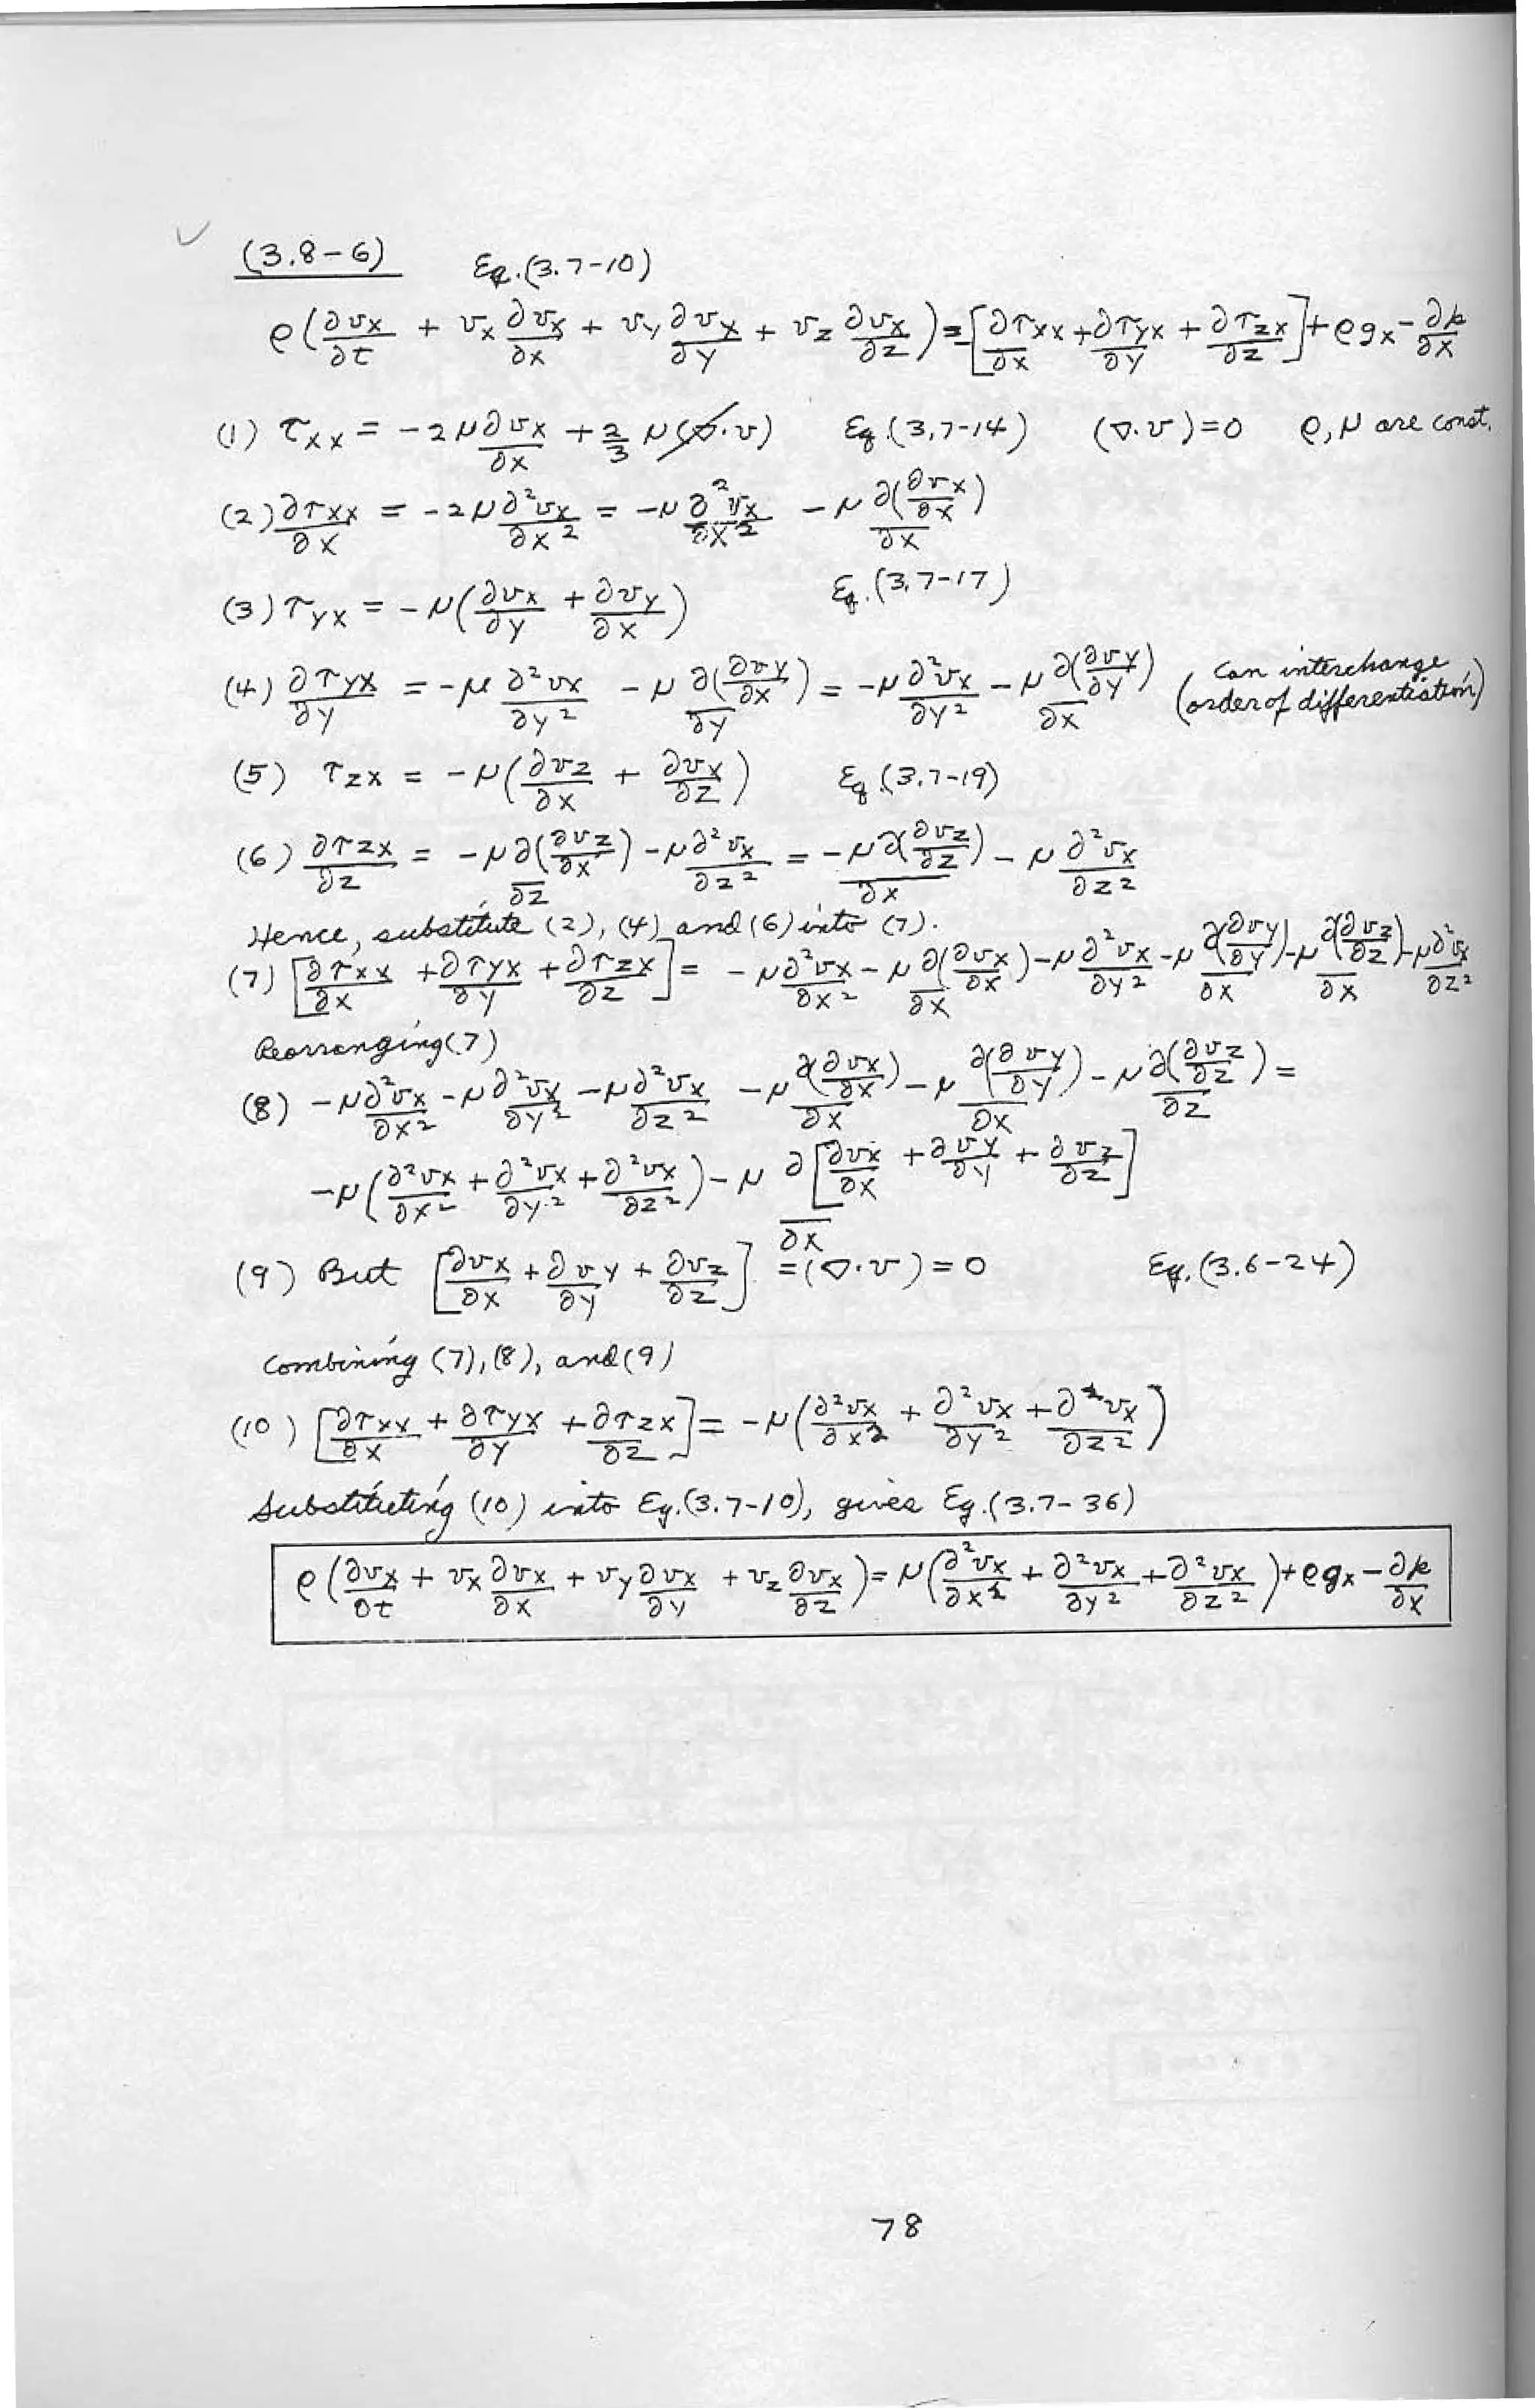 (3.8-6) Eq.(3.7-10)
ρ(∂vx/∂t + vx ∂vx/∂x + vy ∂vx/∂y + vz ∂vx/∂z) = -[∂τxx/∂x + ∂τyx/∂y + ∂τzx/∂z] + ρgx - ∂p/∂x
(1) τxx = -2μ ∂vx/∂x + 2/3 μ(∇·v) Eq.(3.7-14) (∇·v)=0 ρ,μ are const.
(2) ∂τxx/∂x = -2μ ∂²vx/∂x² = -μ ∂²vx/∂x² - μ ∂(∂vx/∂x)/∂x
(3) τyx = -μ(∂vx/∂y + ∂vy/∂x) Eq.(3.7-17)
(4) ∂τyx/∂y = -μ ∂²vx/∂y² - μ ∂(∂vy/∂x)/∂y = -μ ∂²vx/∂y² - μ ∂(∂vy/∂y)/∂x (Can interchange order of differentiation)
(5) τzx = -μ(∂vz/∂x + ∂vx/∂z) Eq.(3.7-19)
(6) ∂τzx/∂z = -μ ∂(∂vz/∂x)/∂z - μ ∂²vx/∂z² = -μ ∂(∂vz/∂z)/∂x - μ ∂²vx/∂z²
Hence, substitute (2), (4) and (6) into (7).
(7) [∂τxx/∂x + ∂τyx/∂y + ∂τzx/∂z] = -μ ∂²vx/∂x² - μ ∂(∂vx/∂x)/∂x - μ ∂²vx/∂y² - μ ∂(∂vy/∂y)/∂x - μ ∂(∂vz/∂z)/∂x - μ ∂²vx/∂z²
Rearranging (7)
(8) -μ ∂²vx/∂x² - μ ∂²vx/∂y² - μ ∂²vx/∂z² - μ ∂(∂vx/∂x)/∂x - μ ∂(∂vy/∂y)/∂x - μ ∂(∂vz/∂z)/∂z =
-μ(∂²vx/∂x² + ∂²vx/∂y² + ∂²vx/∂z²) - μ ∂[∂vx/∂x + ∂vy/∂y + ∂vz/∂z]/∂x
(9) But [∂vx/∂x + ∂vy/∂y + ∂vz/∂z] = (∇·v) = 0 Eq.(3.6-24)
Combining (7), (8), and (9)
(10) [∂τxx/∂x + ∂τyx/∂y + ∂τzx/∂z] = -μ(∂²vx/∂x² + ∂²vx/∂y² + ∂²vx/∂z²)
Substituting (10) into Eq.(3.7-10), gives Eq.(3.7-36)
ρ(∂vx/∂t + vx ∂vx/∂x + vy ∂vx/∂y + vz ∂vx/∂z) = μ(∂²vx/∂x² + ∂²vx/∂y² + ∂²vx/∂z²) + ρgx - ∂p/∂x
78